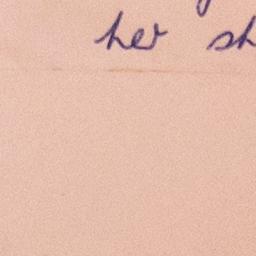 her sh